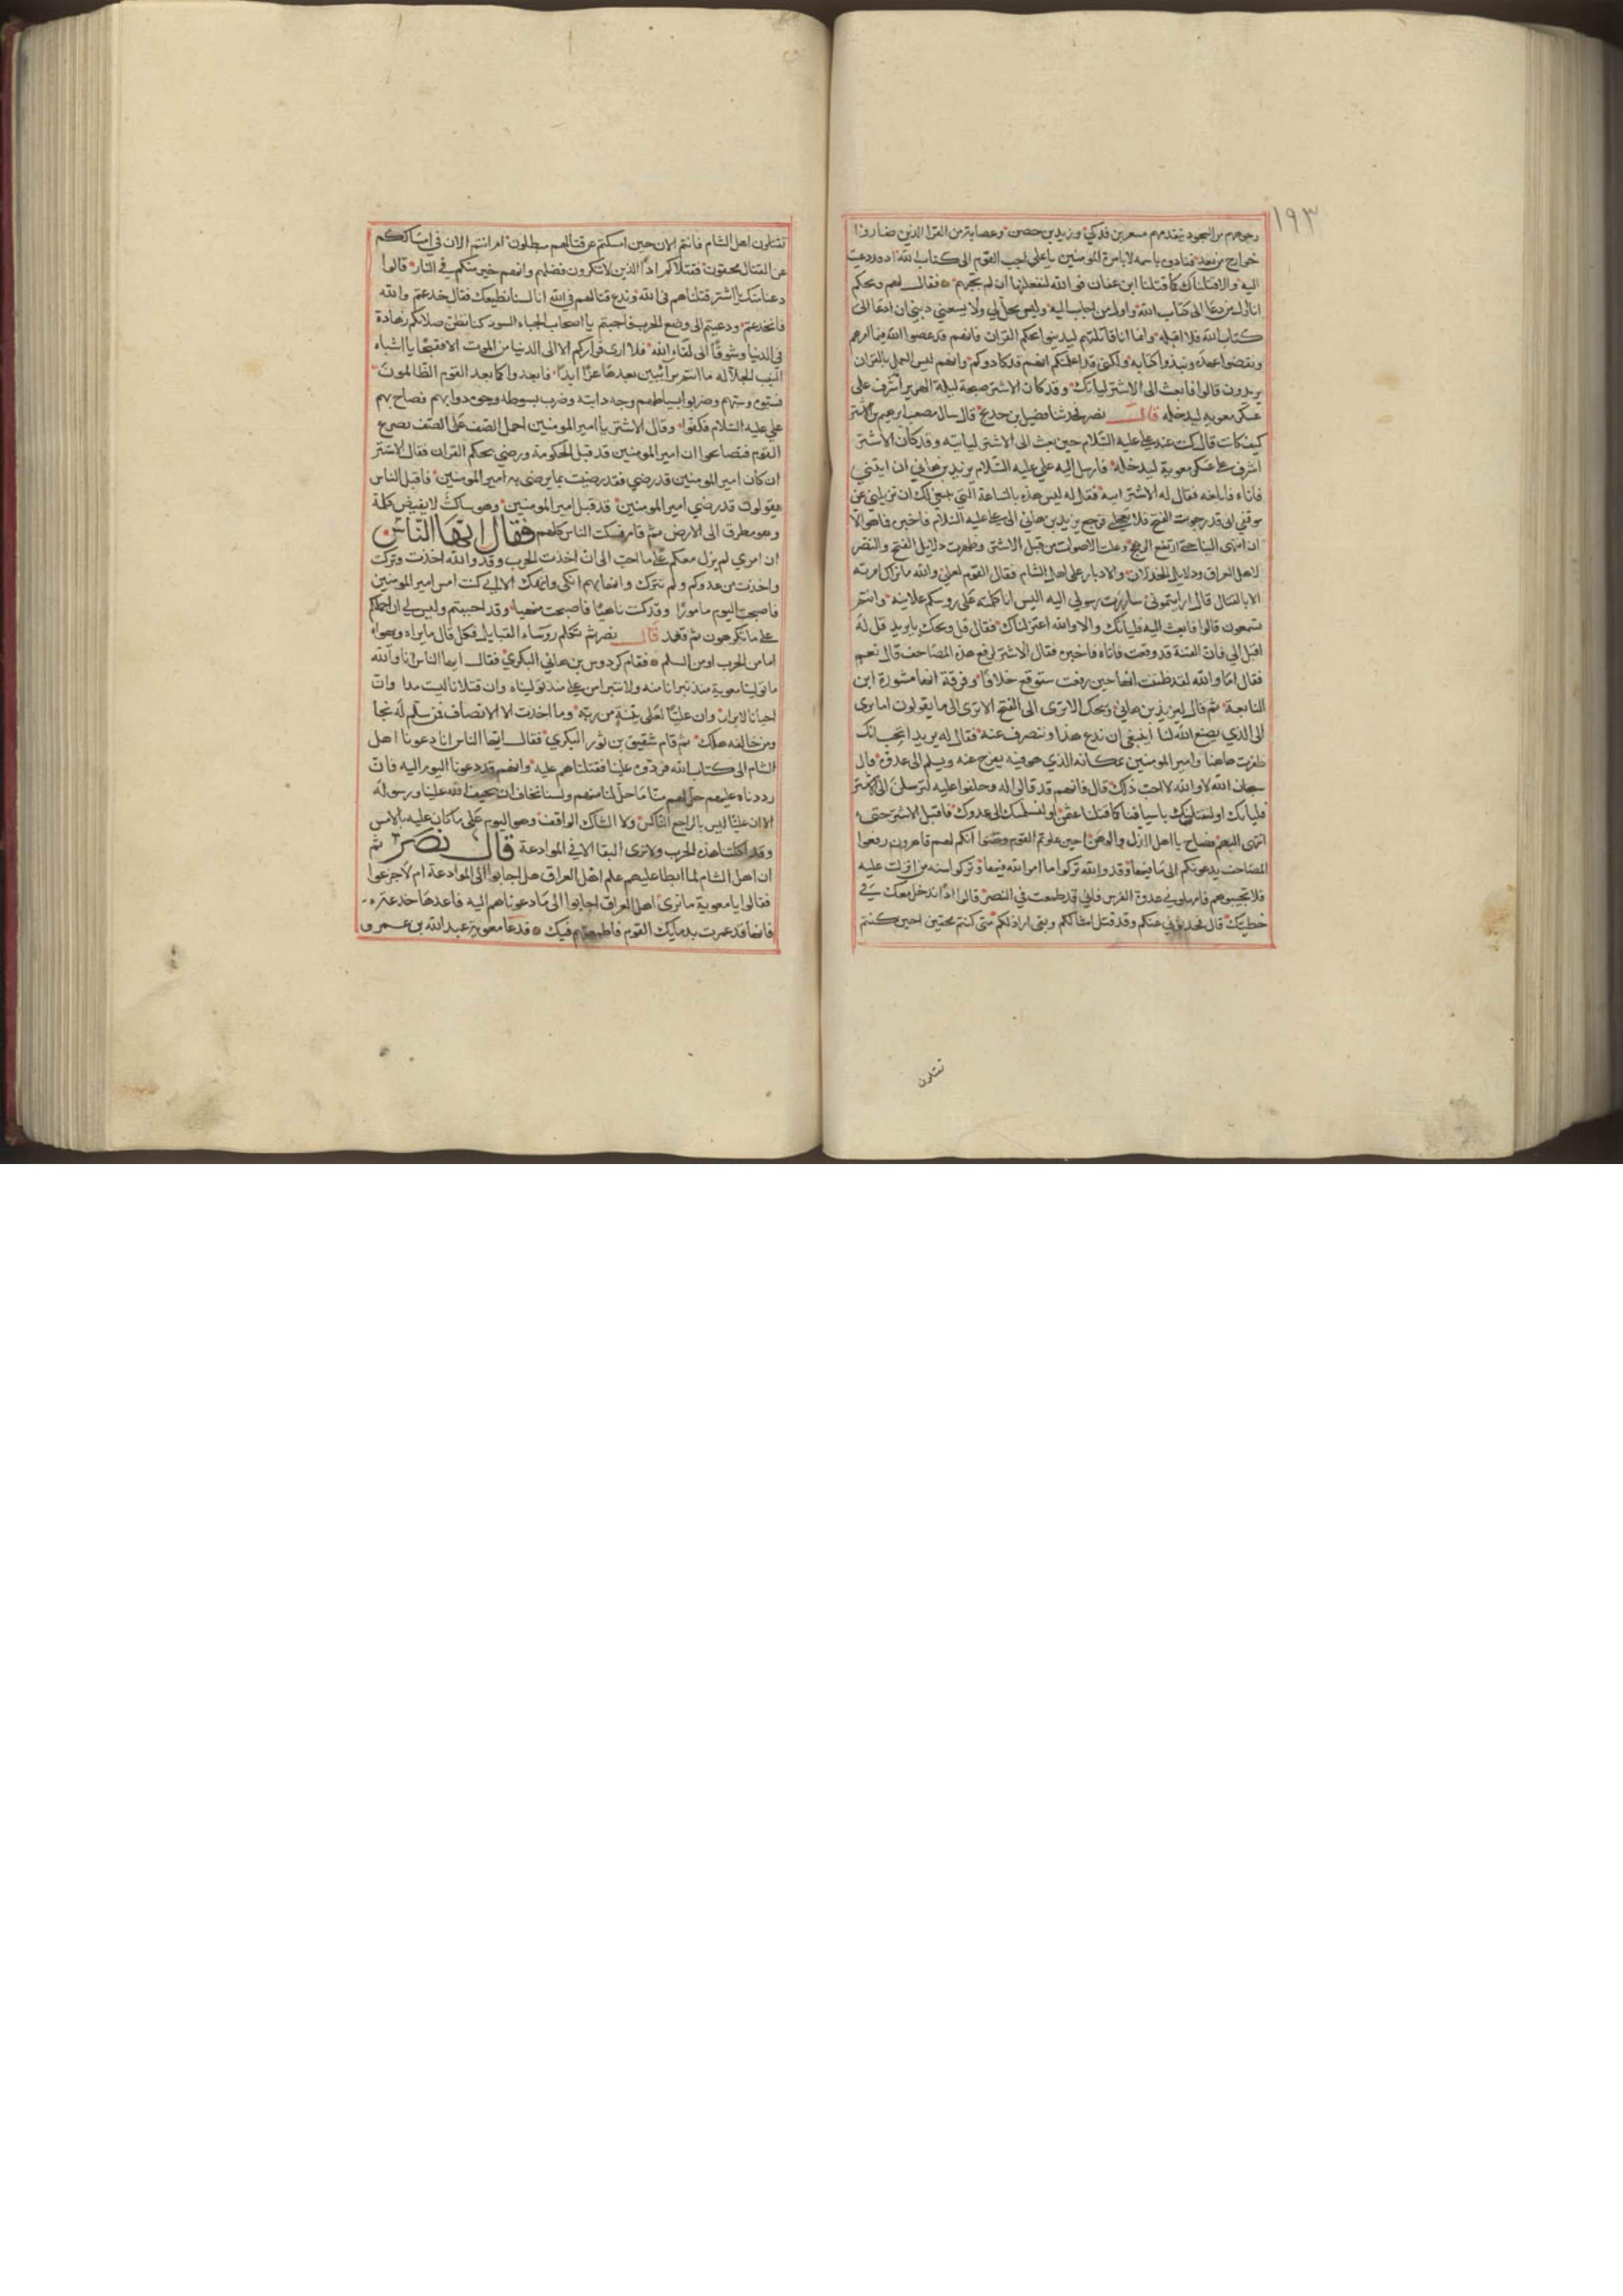 ١٩٣
وجوههم من السجود يتقدمهم مسعر بن فدكي وزيد بن حصن وعصابة من القرا الذين صاروا
خوارج من بعد فنادوه باسمه لا بامرة المومنين يا علي اجب القوم الى كتاب الله اذ دعيت
اليه والا قتلناك كما قتلنا ابن عفان فو الله لنفعلنها ان لم تجبهم فقال لهم ويحكم
انا اول من دعا الى كتاب الله واول من اجاب اليه وليس يحل لي ولا يسعني ديني ان ادعا الى
كتاب الله فلا اقبله وانما انا قاتلتهم ليدينوا بحكم القران فانهم قد عصوا الله فيما امرهم
ونقضوا عهده ونبذوا كتابه ولكني قد اعلمتكم انهم قد كادوكم وانهم ليس العمل بالقران
يريدون قالوا فابعث الى الاشتر لياتك وقد كان الاشتر صبيحة ليلة الهرير اشرف على
عسكر معوية ليدخله قال نصر فحدثنا فضيل بن خديج قال سال مصعب ابرهيم بن الاشتر
كيف كانت قال كنت عند علي عليه السلام حين بعث الى الاشتر لياتيه وقد كان الاشتر
اشرف على عسكر معوية ليدخله فارسل اليه علي عليه السلام يزيد بن هاني ان ايتني
فاتاه فابلغه فقال له الاشتر ايته فقل له ليس هذه بالساعة التي ينبغي لك ان تزيلني عن
موقفي اني قد رجوت الفتح فلا تعجلني فرجع يزيد بن هاني الى علي عليه السلام فاخبره فما هو الا
ان انتهى الينا حتى ارتفع الرهج وعلت الاصوات من قبل الاشتر وظهرت دلايل الفتح والنصر
لاهل العراق ودلايل الخذلان والادبار على اهل الشام فقال القوم لعلي والله ما نراك امرته
الا بالقتال قال ارايتموني ساررت رسولي اليه اليس انا كلمته على روسكم علانية وانتم
تسمعون قالوا فابعث اليه فلياتك والا والله اعتزلناك فقال قل ويحك يا يزيد قل له
اقبل الي فان الفتنة قد وقعت فاتاه فاخبره فقال الاشتر لرفع هذه المصاحف قال نعم
فقال اما والله لقد ظننت انها حين رفعت ستوقع خلافا وفرقة انها مشورة ابن
النابغة ثم قال ليزيد بن هاني ويحك الا ترى الى الفتح الا ترى الى ما يلقون اما ترى
الى الذي يصنع الله لنا اينبغي ان ندع هذا وننصرف عنه فقال له يزيد اتحب انك
ظفرت هاهنا وامير المومنين بمكانه الذي هو فيه يفرج عنه ويسلم الى عدوه قال
سبحان الله لا والله لا احب ذلك قال فانهم قد قالوا له وحلفوا عليه لترسلن الى الاشتر
فلياتك او لنقتلنك باسيافنا كما قتلنا عثمن او لنسلمنك الى عدوك فاقبل الاشتر حتى
انتهى اليهم فصاح يا اهل الذل والوهن احين علوتم القوم وظنوا انكم لهم قاهرون رفعوا
المصاحف يدعونكم الى ما فيها وقد والله تركوا ما امر الله فيها وتركوا سنة من انزلت عليه
فلا تجيبوهم فامهلوني عدوة الفرس فاني قد طمعت في النصر قالوا اذا ندخل معك في
خطيتك قال فحدثوني عنكم وقد قتل اماثلكم وبقي اراذلكم متى كنتم محقين احين كنتم
تقتلون
تقتلون اهل الشام فانتم الان حين امسكتم عن قتالهم مبطلون ام انتم الان في امساككم
عن القتال محقون فقتلاكم اذا الذين لا تنكرون فضلهم وانهم خير منكم في النار قالوا
دعنا منك يا اشتر قتلناهم في الله وندع قتالهم في الله انا لسنا نطيعك فقال خدعتم والله
فانخدعتم ودعيتم الى وضع الحرب فاجبتم يا اصحاب الجباه السود كنا نظن صلاتكم زهادة
في الدنيا وشوقا الى لقاء الله فلا ارى فراركم الا الى الدنيا من الموت الا فقبحا يا اشباه
النيب الجلالة ما انتم برائين بعدها عزا ابدا فابعدوا كما بعد القوم الظالمون
فسبوه وسبهم وضربوا بسياطهم وجه دابته وضرب بسوطه وجوه دوابهم فصاح بهم
علي عليه السلام فكفوا وقال الاشتر يا امير المومنين احمل الصف على الصف تصرع
القوم فتصايحوا ان امير المومنين قد قبل الحكومة ورضي بحكم القران فقال الاشتر
ان كان امير المومنين قد رضي فقد رضيت بما يرضى به امير المومنين فاقبل الناس
يقولون قد رضي امير المومنين قد قبل امير المومنين وهو ساكت لا يفيض كلمة
وهو مطرق الى الارض ثم قام فسكت الناس كلهم فقال ايها الناس
ان امري لم يزل معكم على ما احب الى ان اخذت الحرب وقد والله اخذت وتركت
واخذت من عدوكم ولم تترك وانها فيهم انكى وانهك الا اني كنت امس امير المومنين
فاصبحت اليوم مامورا وقد كنت ناهيا فاصبحت منهيا وقد احببتم وليس لي ان احملكم
على ما تكرهون ثم قعد قال نصر ثم تكلم روساء القبايل فكل قال ما يراه ويهواه
اما من الحرب او من السلم فقام كردوس بن هاني البكري فقال ايها الناس انا والله
ما تولينا معوية منذ تبرانا منه ولا تبرانا من علي منذ توليناه وان قتلانا ان
احيانا لابرار وان عليا لعلى بينة من ربه وما احدث الا الانصاف فمن سلم له نجا
ومن خالفه هلك ثم قام شقيق بن ثور البكري فقال ايها الناس انا دعونا اهل
الشام الى كتاب الله فردوه علينا فقتلناهم عليه وانهم قد دعونا اليوم اليه فان
رددناه عليهم حل لهم منا ما حل لنا منهم ولسنا نخاف ان يحيف الله علينا ورسوله
الا ان عليا ليس بالراجع الناكس ولا الشاك الواقف وهو اليوم على ما كان عليه بالامس
وقد اكلتنا هذه الحرب ولا نرى البقا الا في الموادعة قال نصر ثم
ان اهل الشام لما ابطا عليهم علم اهل العراق هل اجابوا الى الموادعة ام لا جزعوا
فقالوا يا معوية ما نرى اهل العراق اجابوا الى ما دعوناهم اليه فاعدها خدعة
فانها قد غمرت بدعايك القوم فاطمعتهم فيك فدعا معوية عبد الله بن عمرو